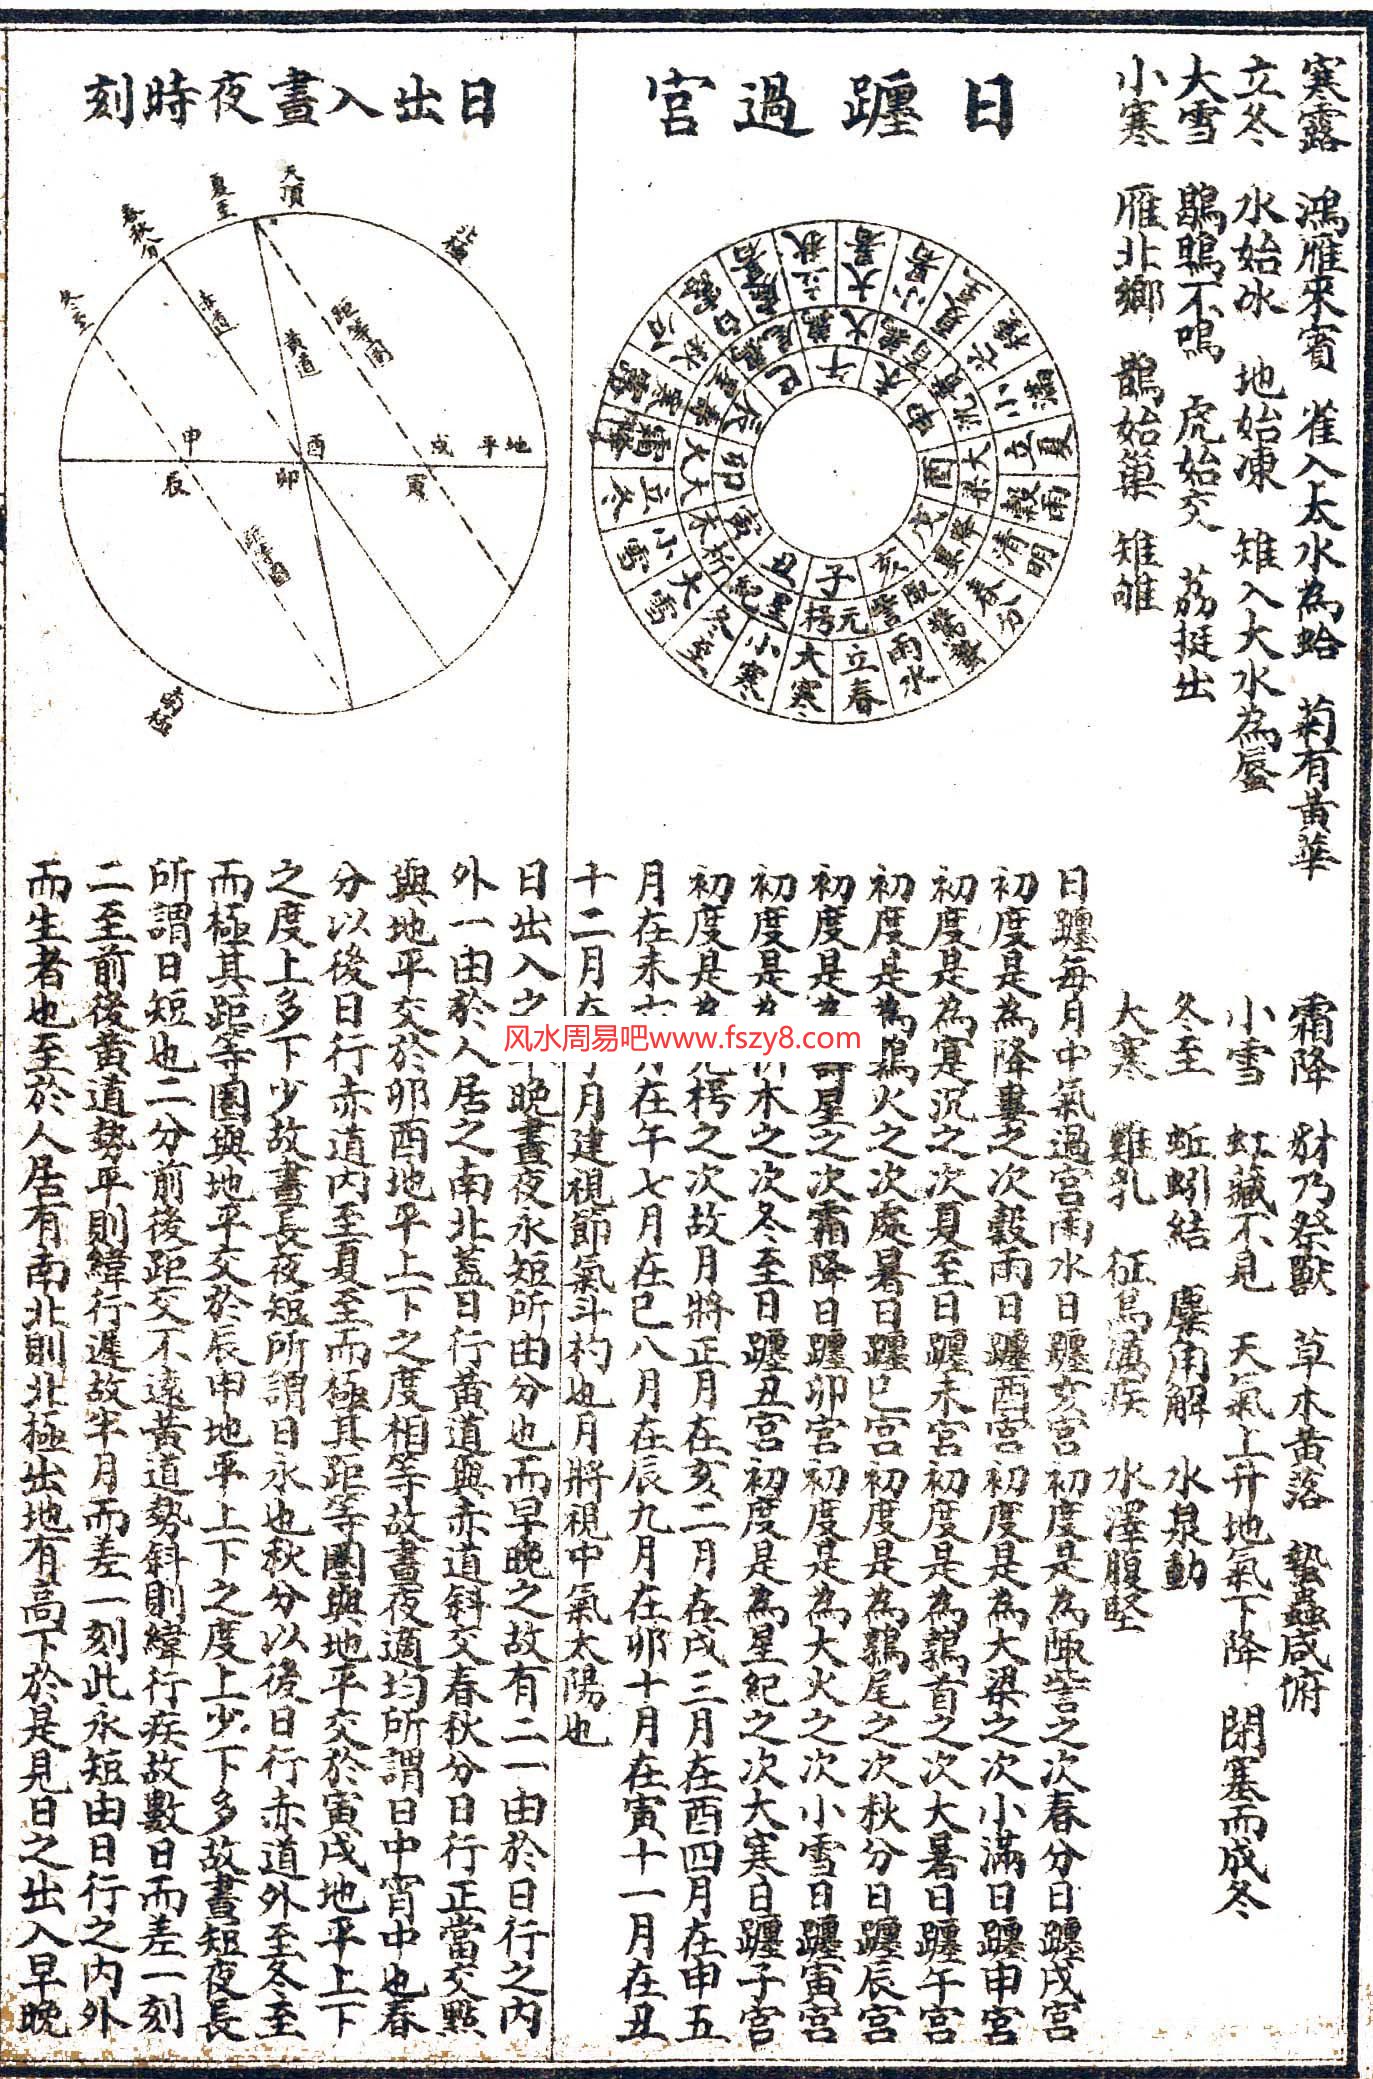 寒露 鴻雁來賓 雀入大水為蛤 菊有黃華 霜降 豺乃祭獸 草木黃落 蟄蟲咸俯
立冬 水始冰 地始凍 雉入大水為蜃 小雪 虹藏不見 天氣上升地氣下降 閉塞而成冬
大雪 鶡鴠不鳴 虎始交 荔挺出 冬至 蚯蚓結 麋角解 水泉動
小寒 雁北鄉 鵲始巢 雉雊 大寒 雞乳 征鳥厲疾 水澤腹堅
日躔過宮
立秋 大暑 小暑 夏至 芒種 小滿 立夏 穀雨 清明 春分 驚蟄 雨水 立春 大寒 小寒 冬至 大雪 小雪 立冬 霜降 寒露 秋分 白露 處暑
鶉火 鶉首 實沈 大梁 降婁 娵訾 元枵 星紀 析木 大火 壽星 鶉尾
午 未 申 酉 戌 亥 子 丑 寅 卯 辰 巳
日躔每月中氣過宮雨水日躔亥宮初度是為娵訾之次春分日躔戌宮
初度是為降婁之次穀雨日躔酉宮初度是為大梁之次小滿日躔申宮
初度是為寔沉之次夏至日躔未宮初度是為鶉首之次大暑日躔午宮
初度是為鶉火之次處暑日躔巳宮初度是為鶉尾之次秋分日躔辰宮
初度是為壽星之次霜降日躔卯宮初度是為大火之次小雪日躔寅宮
初度是為析木之次冬至日躔丑宮初度是為星紀之次大寒日躔子宮
初度是為元枵之次故月將正月在亥二月在戌三月在酉四月在申五
月在未六月在午七月在巳八月在辰九月在卯十月在寅十一月在丑
十二月在子月建視節氣斗杓也月將視中氣太陽也
日出入晝夜時刻
天頂
夏至
春秋分
冬至
北極
赤道
黃道
距等圈
地平
戌
酉
申
寅
卯
辰
距等圈
南極
日出入之早晚晝夜永短所由分也而早晚之故有二一由於日行之內
外一由於人居之南北蓋日行黃道與赤道斜交春秋分日行正當交點
與地平交於卯酉地平上下之度相等故晝夜適均所謂日中宵中也春
分以後日行赤道內至夏至而極其距等圈與地平交於寅戌地平上下
之度上多下少故晝長夜短所謂日永也秋分以後日行赤道外至冬至
而極其距等圈與地平交於辰申地平上下之度上少下多故晝短夜長
所謂日短也二分前後距交不遠黃道勢斜則緯行疾故數日而差一刻
二至前後黃道勢平則緯行遲故半月而差一刻此永短由日行之內外
而生者也至於人居有南北則北極出地有高下於是見日之出入早晚
风水周易吧www.fszy8.com